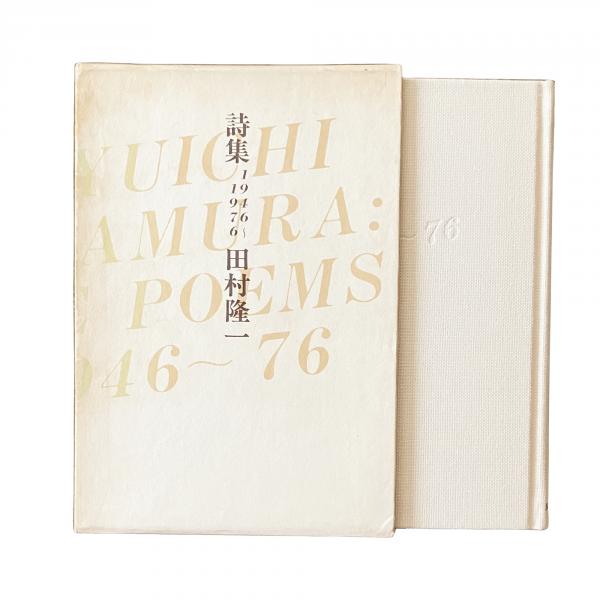 詩集
1946~
1976
田村隆一
YUICHI
AMURA:
POEMS
946~76
~76